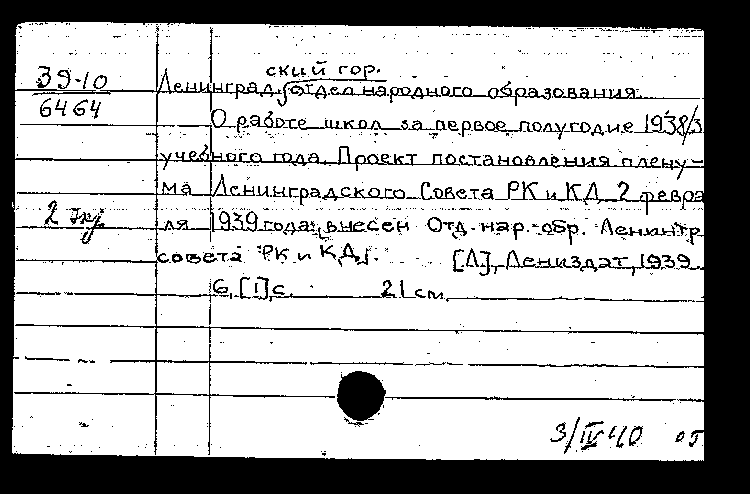 39-10
6464
ский гор.
Ленинград. отдел народного образования.
О работе школ за первое полугодие 1938/3
учебного года. Проект постановления плену-
ма Ленинградского Совета РК и КД 2 февра
2 экз
ля 1939 года, внесен Отд. нар. обр. Ленингр
совета РК и К.Д.
[Л], Лениздат, 1939
6, [1] с. 21 см.
3/IV 40